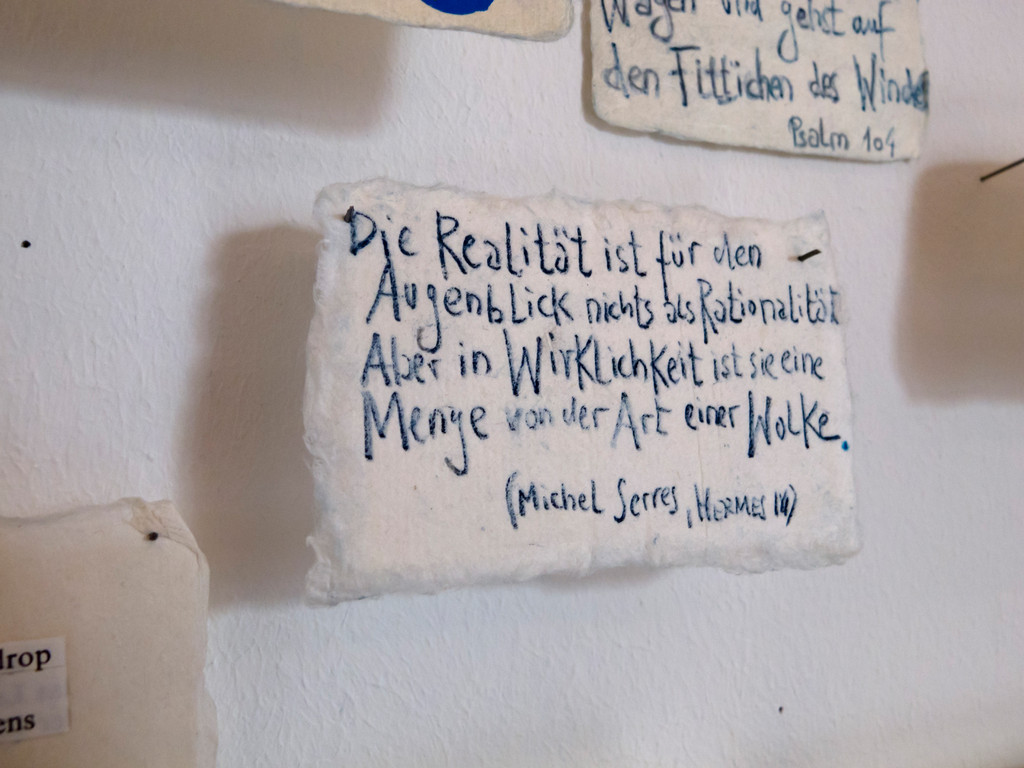 Wagen und gehst auf
den Fittichen des Windes
Psalm 104
Die Realität ist für den
Augenblick nichts als Rationalität
Aber in Wirklichkeit ist sie eine
Menge von der Art einer Wolke.
(Michel Serres, HERMES IV)
drop
ens